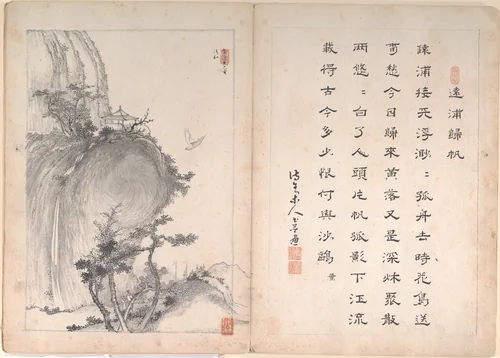 遠浦歸帆
浦接天浮渺〻孤舟去時花鳥送
愁今日歸來黃落又是深秋聚散
兩悠〻白了人頭片帆孤影下江流
載得古今多少恨何與沙鷗